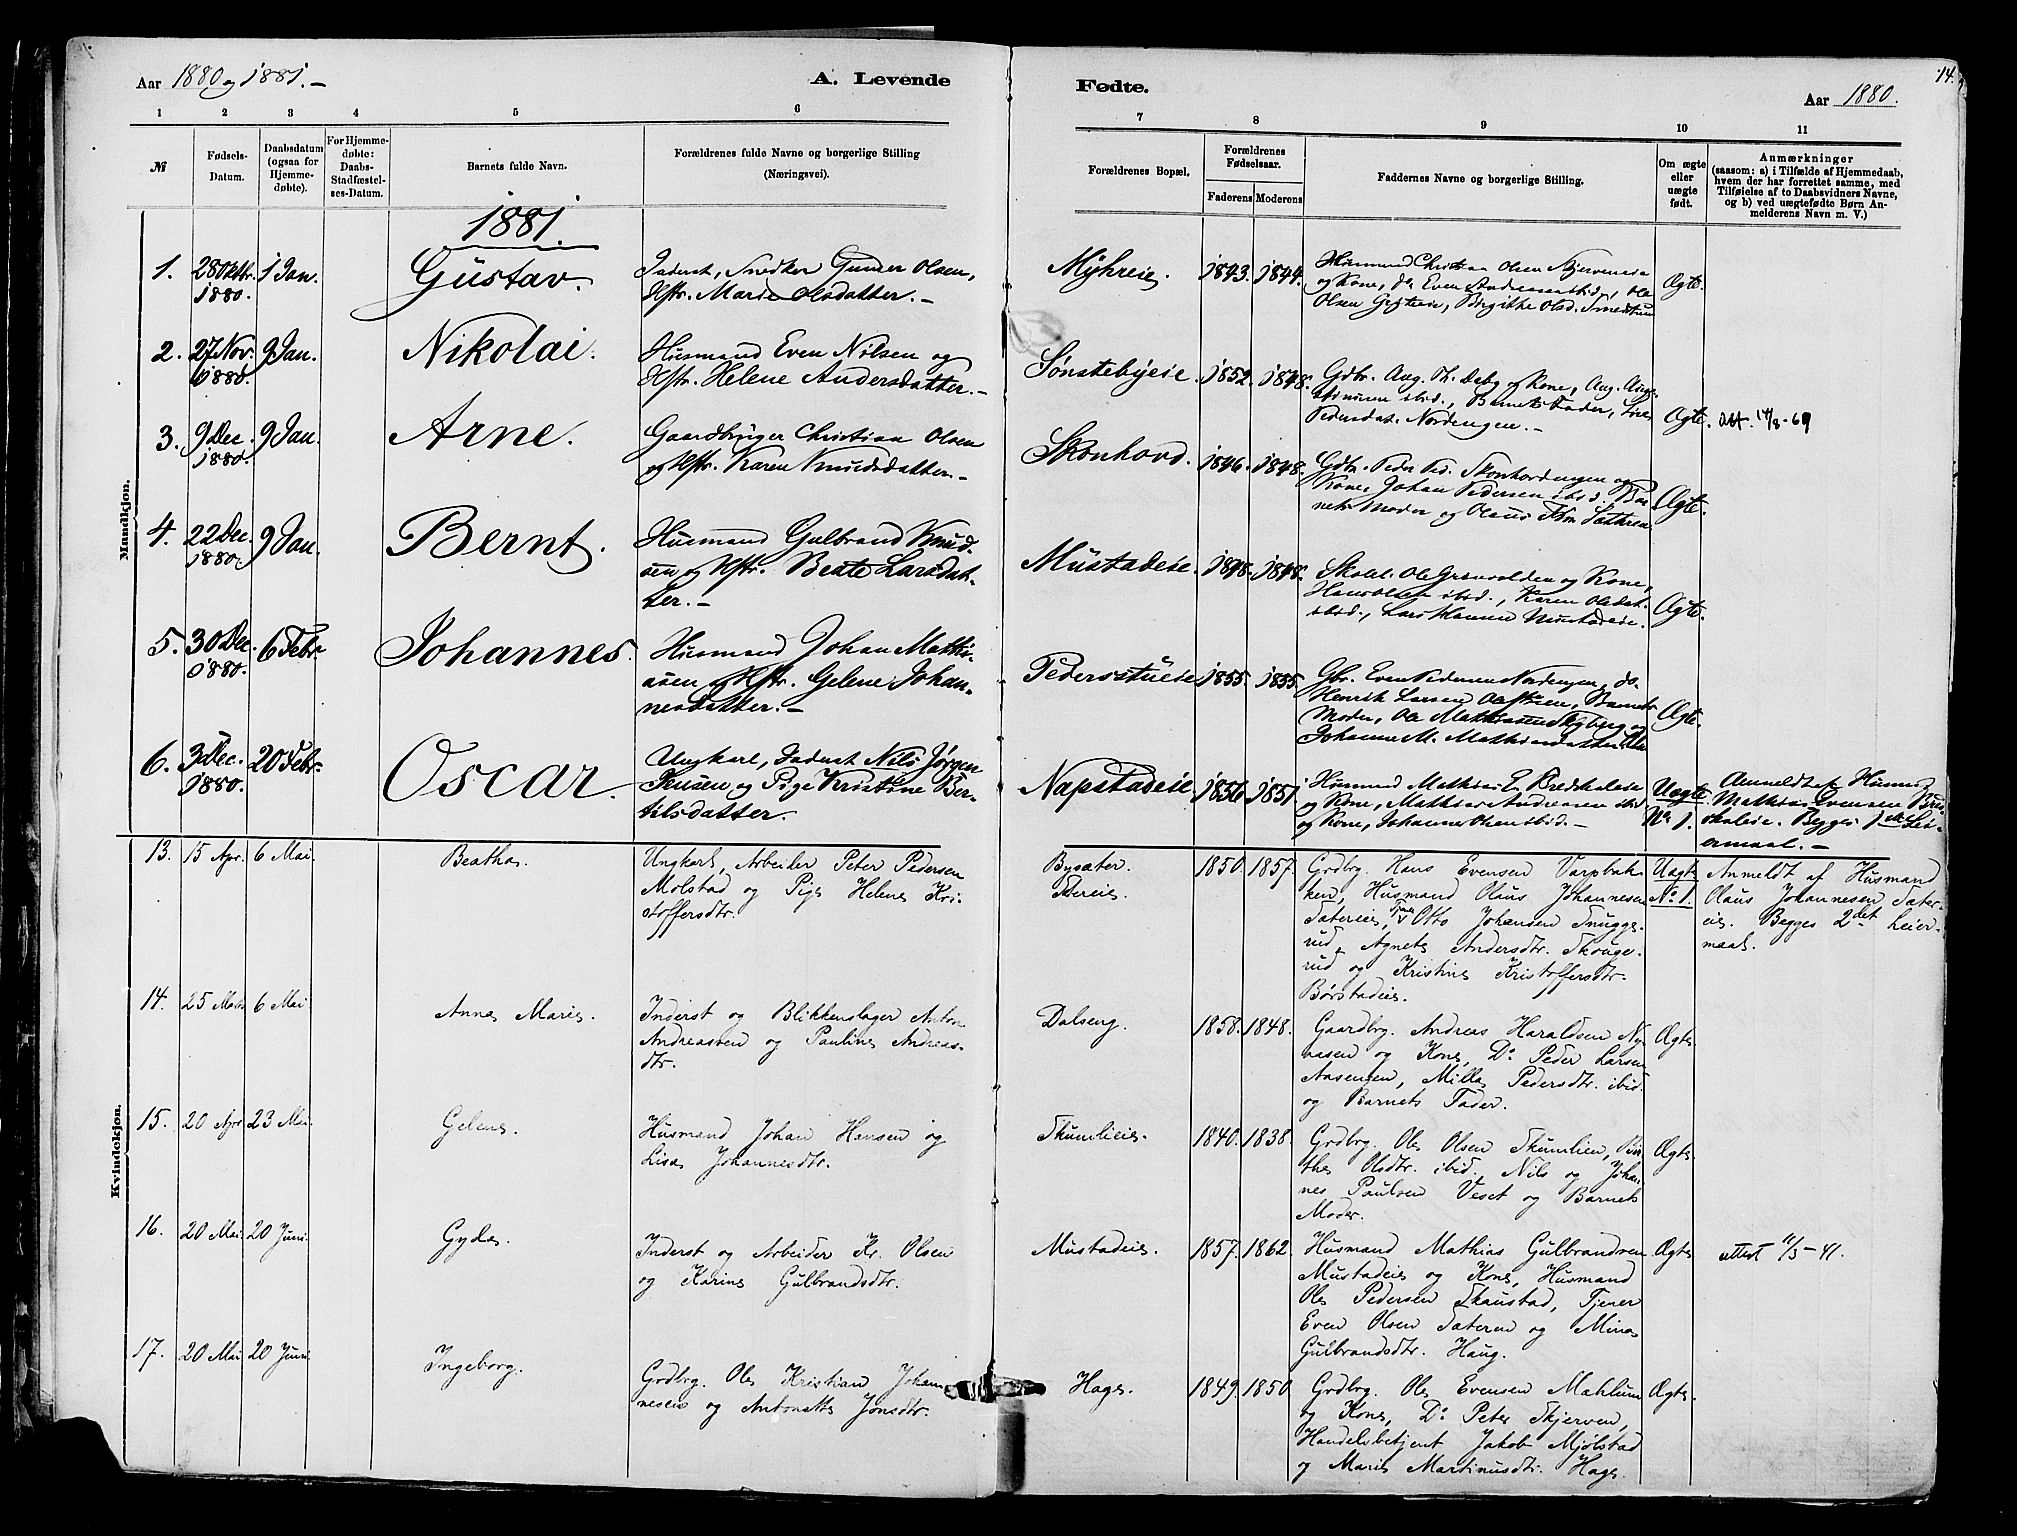 Aar 1880 og 1881. –
A. Levende
Fødte.
Aar 1880.
14.
1 2 3 4 5 6 7 8 9 10 11
№
Fødsels-
Datum.
Daabsdatum
(ogsaa for
Hjemme-
døbte).
For Hjemme-
døbte:
Daabs-
Stadfæstel-
ses-Datum.
Barnets fulde Navn.
Forældrenes fulde Navne og borgerlige Stilling
(Næringsvei).
Forældrenes Bopæl.
Forældrenes
Fødselsaar.
Faderens Moderens
Faddernes Navne og borgerlige Stilling.
Om ægte
eller
uægte
født.
Anmærkninger
(saasom: a) i Tilfælde af Hjemmedaab,
hvem der har forrettet samme, med
Tilføielse af to Daabsvidners Navne,
og b) ved uægtefødte Børn An-
melderens Navn m. V.)
Mandkjøn.
1881.
1. 28 Oktbr. 1880. 1 Jan. Gustav.
Inderst, Snedker Gunder Olsen,
Hstr. Marie Olsdatter. –
Myhreie. 1843. 1844.
Husmand Christian Olsen
og Kone, do Even Andreassen ibid., Ole
Olsen Birgitte Olsd.
Ægte.
2. 27 Nov. 1880. 9 Jan. Nikolai.
Husmand Even Nilsen og
Hstr. Helene Andersdatter. –
Sønstebyeie. 1852. 1848.
Gdbr. Aug. Th. Deby og Kone, Aug.
ibid., Barnets Fader,
Pedersdat. Nordengen. –
Ægte. att. 14/8-69
3. 9 Dec. 1880. 9 Jan. Arne.
Gaardbruger Christian Olsen
og Hstr. Karen Knudsdatter. –
Skonhovd. 1846. 1848.
Gdbr. Peder Ped. Skonhovdengen og
Kone, Johan Pedersen ibid. Bar-
nets Moder og Olaus
Ægte.
4. 22 Dec. 1880. 9 Jan. Bernt.
Husmand Gulbrand Knud-
sen og Hstr. Beate Larsdat-
ter. –
Mustadeie. 1848. 1848.
Skolel. Ole Grønvolden og Kone,
Hans Olsen ibid., Karen Olsdat.
ibid., Lars Hansen Mustadeie.
Ægte.
5. 30 Dec. 1880. 6 Febr. Johannes.
Husmand Johan Mathi-
sen og Hstr. Gelene Johan-
nesdatter. –
Pedersstueie 1855 1855.
Gbr. Even Pedersen Nordengen, do.
Henrik Larsen Barnets
Moder, Ole Mathiassen Nyberg og
Johanne M. Mathiasdatter
Ægte.
6. 3 Dec. 1880. 20 Febr. Oscar.
Ungkarl, Inderst Nils Jørgen
Jensen og Pige Kristine Ber-
tilsdatter.
Napstadeie. 1856 1851.
Husmand Mathias E. Bredskaleie
og Kone, Mathias Andreasen ibid
og Kone, Johannes Olsen ibid. –
Uægte
No 1.
Anmeldt af Husmd
Mathias Evensen Bred-
skaleie. Begges 1ste Lei-
ermaal. –
Kvindekjøn.
13. 15 Apr. 6 Mai. Beathe.
Ungkarl, Arbeider Peter Pedersen
Molstad og Pige Helene Kri-
stoffersdtr.
Bysæter.
1850. 1857.
Grdbrg. Hans Evensen Varpbak-
ken, Husmand Olaus Johannesen
Sætereie, Tjener Otto Johansen Snugge-
rud, Agnete Andersdtr. Skouge-
rud og Kristine Kristoffersdtr.
Børstadeie.
Uægte
No 1.
Anmeldt af Husmand
Olaus Johannesen Sæter-
eie. Begges 2det Leier-
maal.
14. 25 Marts 6 Mai Anne Marie.
Inderst og Blikkenslager Anton
Andreassen og Pauline Andreas-
dtr.
Dalseng. 1858. 1848.
Gaardbrg. Andreas Haraldsen Ny-
aasen og Kone, Do Peder Larsen
Aasengen, Mille Pedersdtr. ibid.
og Barnets Fader.
Ægte
15. 20 Apr. 23 Mai Gelene.
Husmand Johan Hansen og
Lisa Johannesdtr.
Skumlieie. 1840. 1838.
Grdbrg. Ole Olsen Skumlien, Bir-
the Olsdtr. ibid., Nils og Johan-
nes Paulsen Veset og Barnets
Moder.
Ægte
16. 20 Mai. 20 Juni. Gyda.
Inderst og Arbeider Kr. Olsen
og Karine Gulbrandsdtr.
Mustadeie. 1857. 1862.
Husmand Mathias Gulbrandsen
Mustadeie og Kone, Husmand
Ole Pedersen Skaustad, Tjener
Even Olsen Sæteren og Mina
Gulbrandsdtr. Haug.
Ægte
attest 11/5-41.
17. 20 Mai 20 Juni. Ingeborg.
Grdbrg. Ole Kristian Johan-
nesen og Antonette Jonsdtr.
Hage. 1849. 1850
Grdbrg. Ole Evensen Mahlum
og Kone, Do Peter Skjerven,
Handelsbetjent Jakob Mjølstad
og Marie Martinusdtr. Hage.
Ægte.